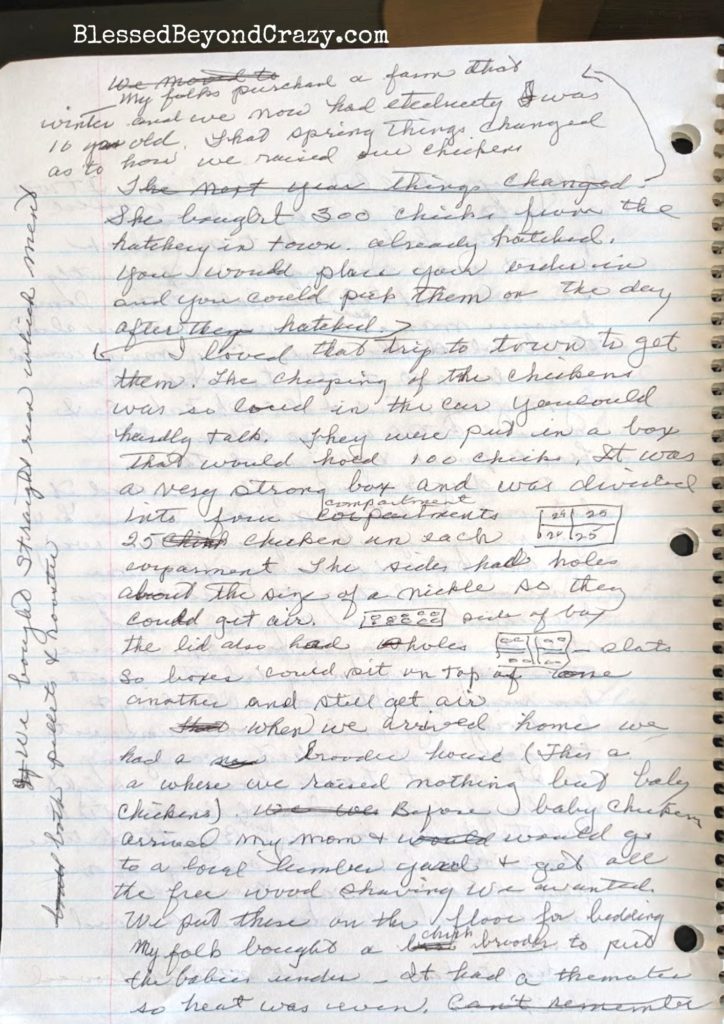 BlessedBeyondCrazy.com
We moved to
My folks purchased a farm that
winter and we now had electricity I was
16 year old. That spring things changed
as to how we raised our chickens
The next year things changed.
She bought 300 chicks from the
hatchery in town. already hatched.
You would place your order in
and you could pick them on the day
after they hatched.
I loved that trip to town to get
them. The cheeping of the chickens
was so loud in the car you could
hardly talk. They were put in a box
that would hold 100 chicks. It was
a very strong box and was divided
compartment
into four
25 25
25 25
25 chicken in each
comparment The sides had holes
about the size of a nickle so they
could get air. side of box
the lid also had holes – slats
so boxes could sit on top of one
another and still get air
that when we arrived home we
had a brooder house (This a
a where we raised nothing but baby
chickens). Before baby chickens
arrived my mom & would would go
to a local lumber yard & get all
the free wood shaving we wanted.
We put these on the floor for bedding
chick
My folk bought a brooder to put
the babies under – It had a
so heat was even. Can't remember
We bought straight run which ment
both pullets & rooster